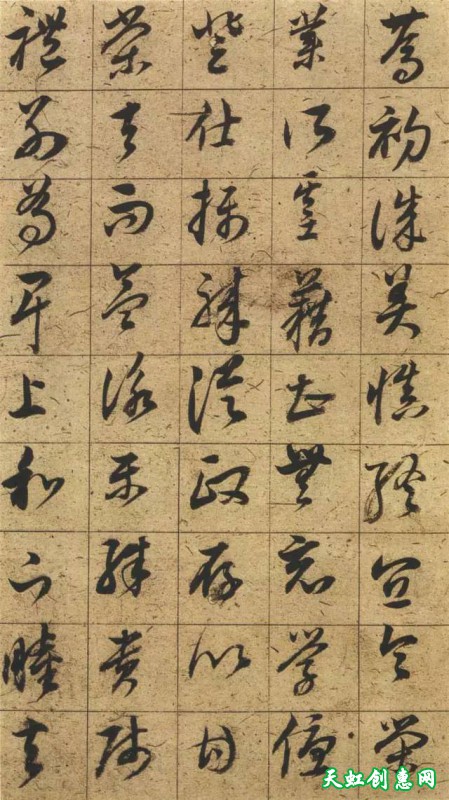 篤初誠美慎終宜令榮
業所基藉甚無竟學優
登仕攝職從政存以甘
棠去而益詠樂殊貴賤
禮別尊卑上和下睦夫
天虹创惠网